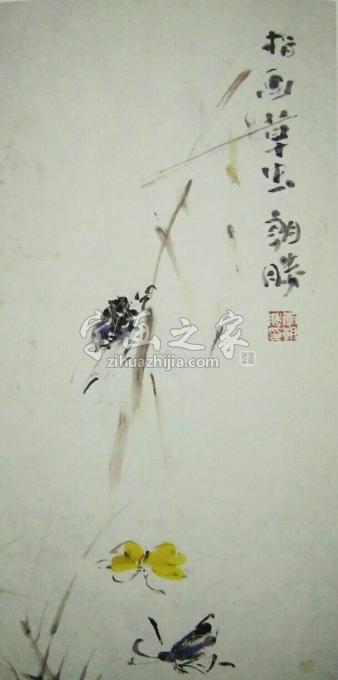 指画草虫 朝勝
字画之家
zihuazhijia.com